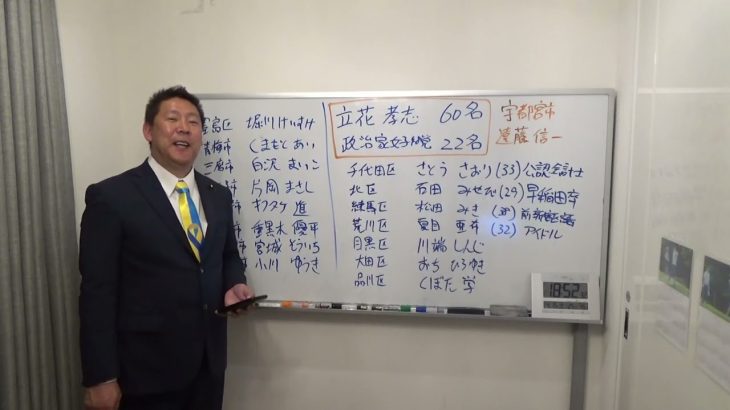 区 堀川 けいすけ
青梅市 くまもと あい
市 白沢 まいこ
市 片岡 まさし
市 進
市 重黒木 優平
市 宮城 そういち
市 小川 ゆうき
立花 孝志 60名
政治家女子48党 22名
宇都宮市
遠藤 信一
千代田区 さとう さおり (33) 公認会計士
北区 石田 みせび (29) 早稲田卒
練馬区 松田 みき (38) 前
荒川区 夏目 亜希 (32) アイドル
目黒区 川端 しんじ
大田区 おち ひろゆき
品川区 くぼた 学
18:52